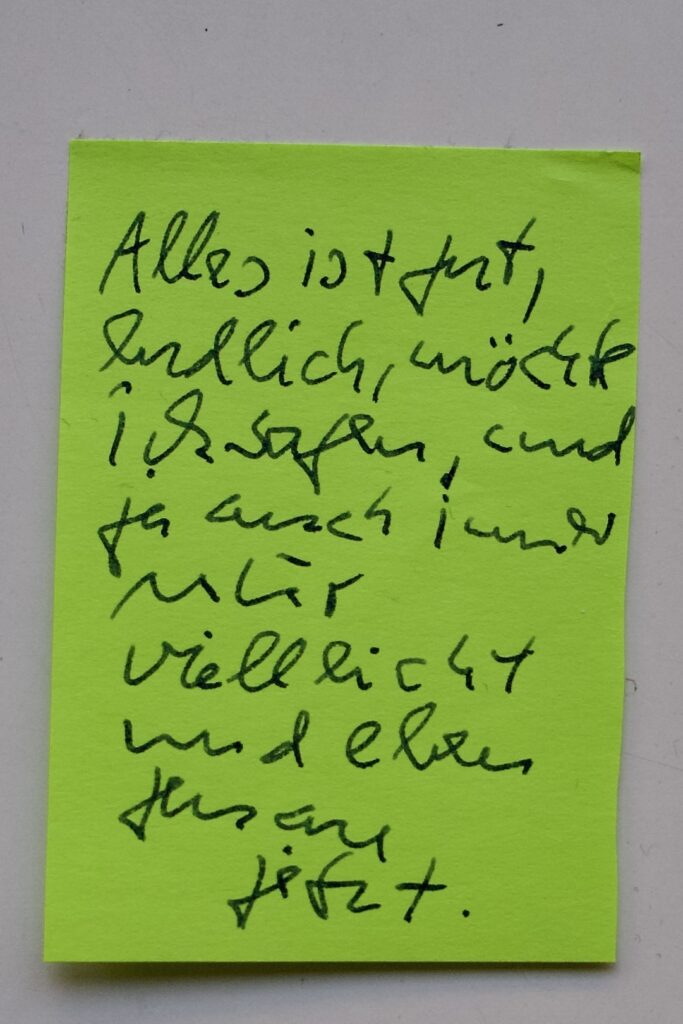 Alles ist gut,
endlich, möchte
ich sagen, und
ja auch immer
vielleicht
und eben
genau
jetzt.